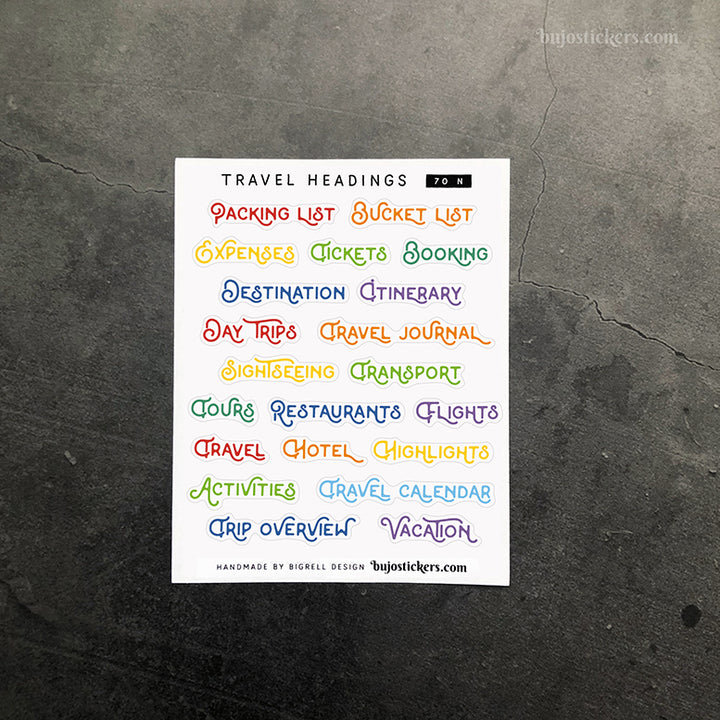 bujostickers.com
TRAVEL HEADINGS 70 N
PACKING LIST BUCKET LIST
EXPENSES TICKETS BOOKING
DESTINATION ITINERARY
DAY TRIPS TRAVEL JOURNAL
SIGHTSEEING TRANSPORT
TOURS RESTAURANTS FLIGHTS
TRAVEL HOTEL HIGHLIGHTS
ACTIVITIES TRAVEL CALENDAR
TRIP OVERVIEW VACATION
HANDMADE BY BIGRELL DESIGN bujostickers.com